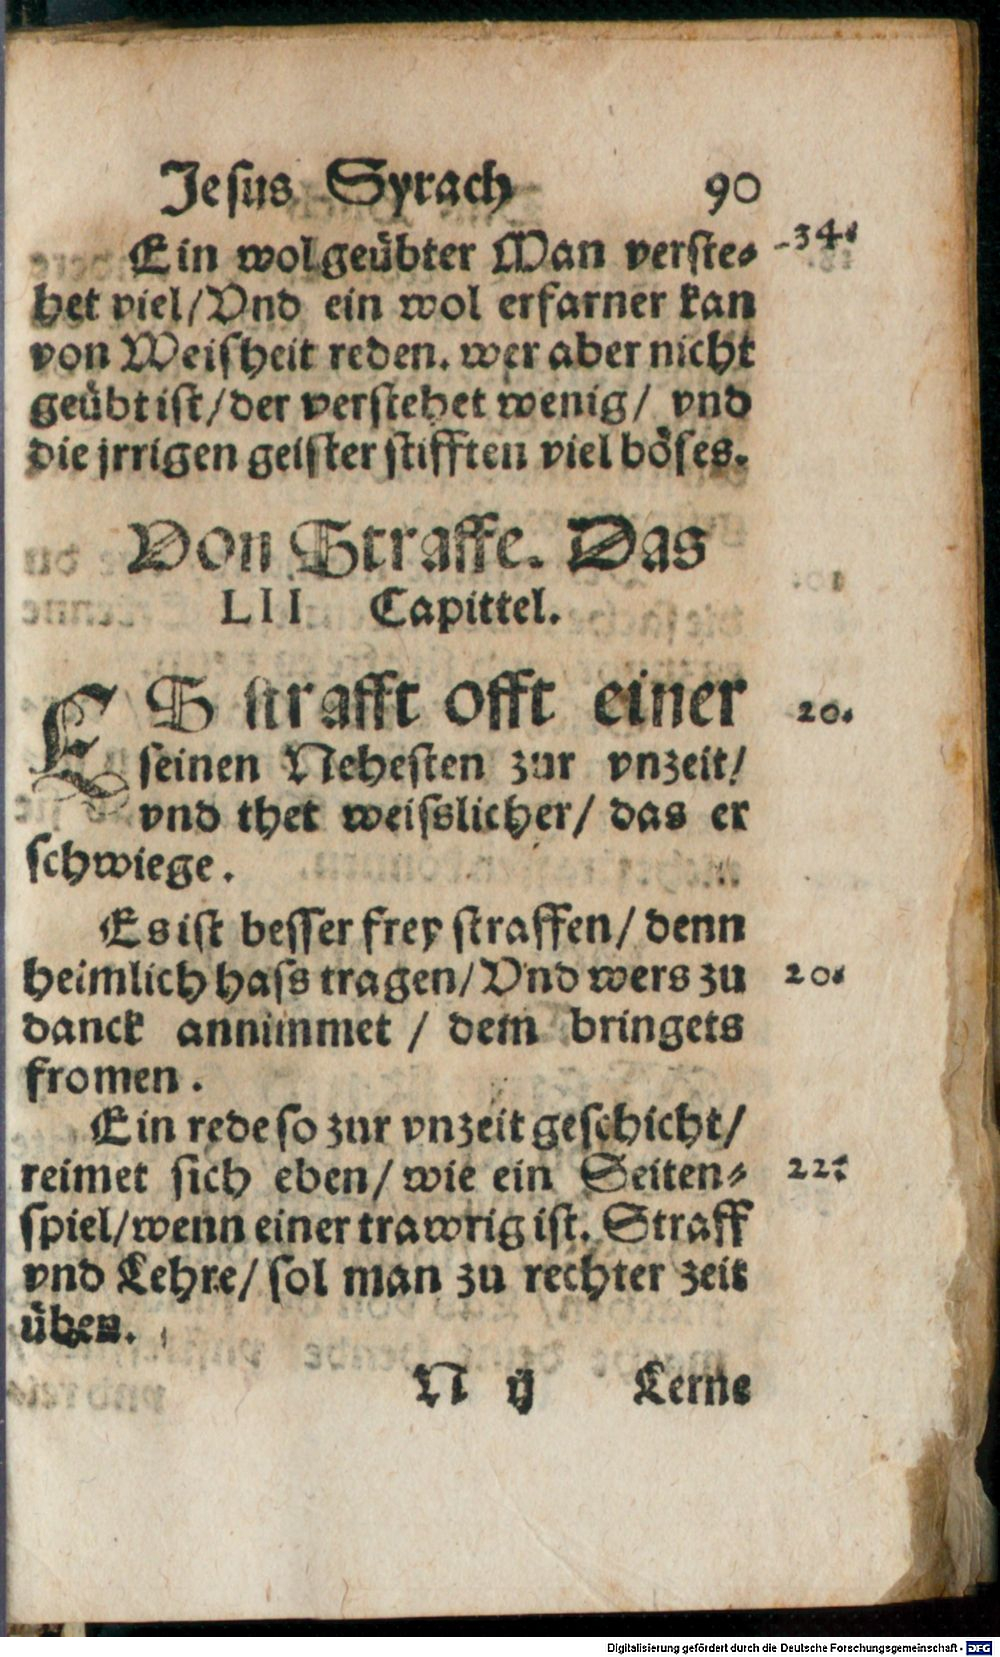 Jesus Syrach 90
Ein wolgeübter Man verste⸗ 34.
het viel/Vnd ein wol erfarner kan
von Weisheit reden. wer aber nicht
geübt ist/der verstehet wenig/ vnd
die jrrigen geister stifften viel böses.
Von Straffe. Das
LII Capittel.
ES strafft offt einer 20.
seinen Nehesten zur vnzeit/
vnd thet weisslicher/ das er
schwiege.
Es ist besser frey straffen/ denn
heimlich hass tragen/Vnd wers zu 20.
danck annimmet / dem bringets
fromen.
Ein rede so zur vnzeit geschicht/
reimet sich eben/ wie ein Seiten⸗ 22.
spiel/wenn einer trawrig ist. Straff
vnd Lehre/ sol man zu rechter zeit
üben.
N ij Lerne
Digitalisierung gefördert durch die Deutsche Forschungsgemeinschaft - DFG